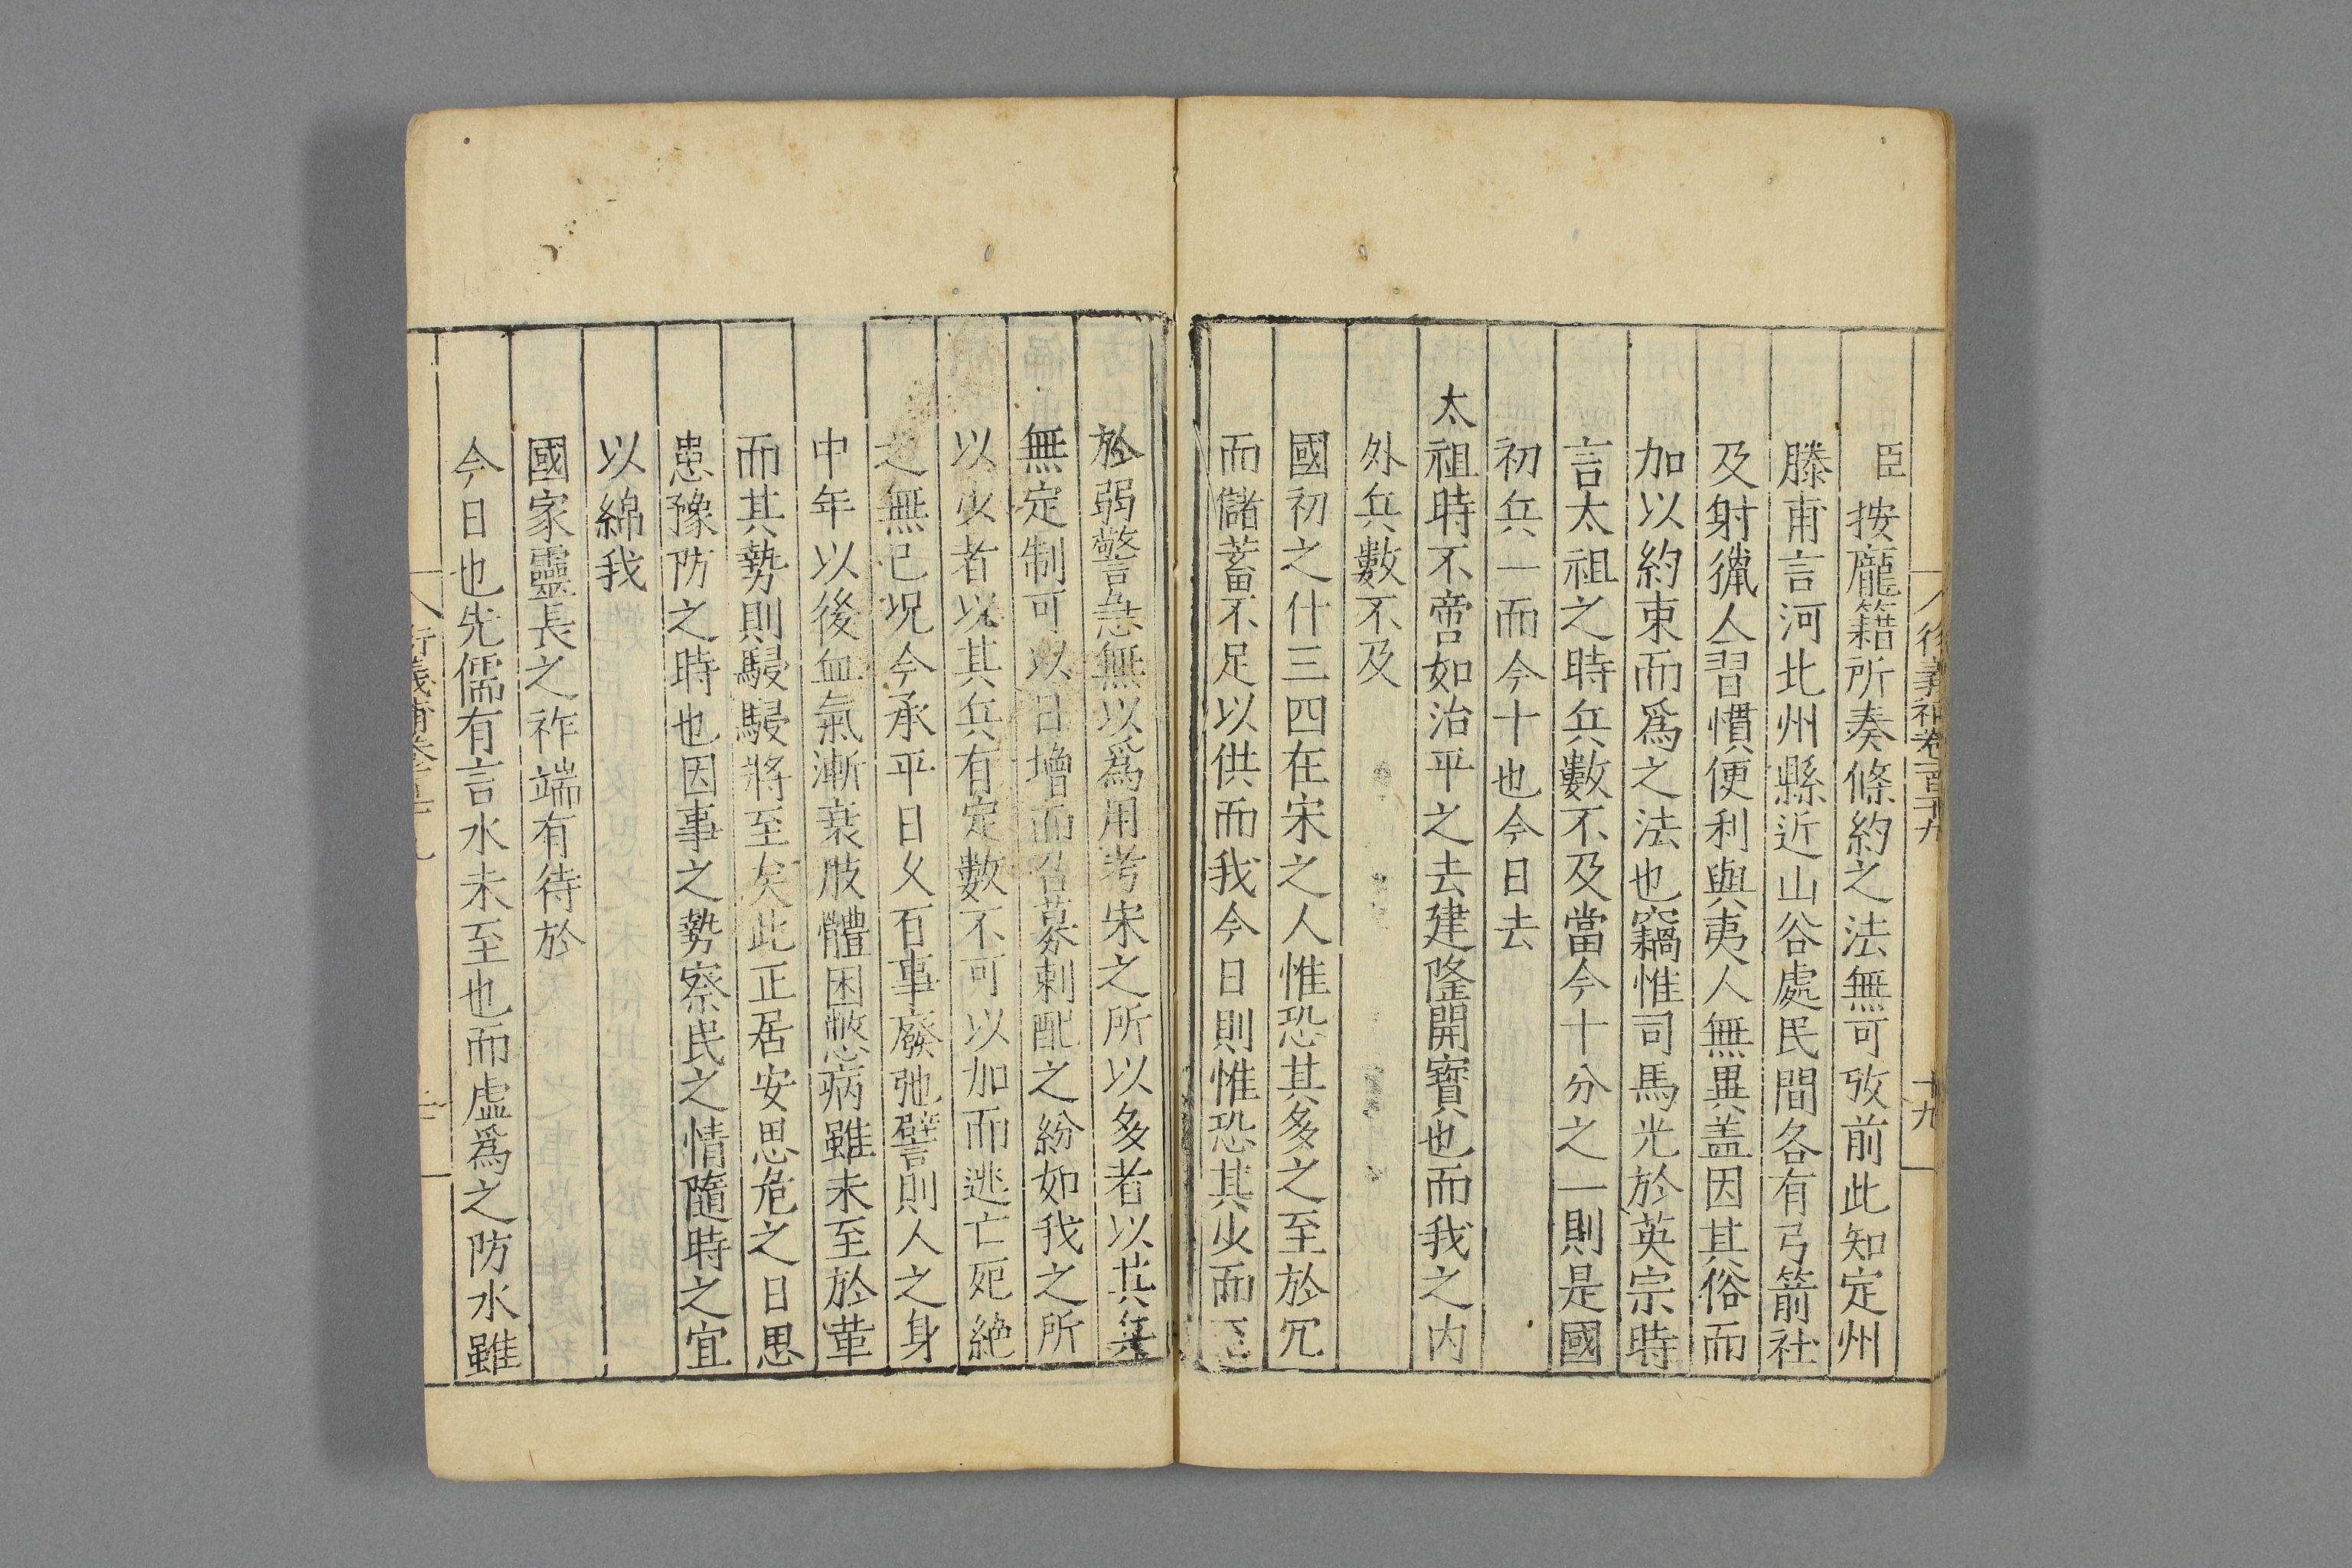 臣按龐籍所奏條約之法無可攷前此知定州
滕甫言河北州縣近山谷處民間各有弓箭社
及射獵人習慣便利與夷人無異盖因其俗而
加以約束而爲之法也竊惟司馬光於英宗時
言太祖之時兵數不及當今十分之一則是國
初兵一而今十也今日去
太祖時不啻如治平之去建隆開寶也而我之内
外兵數不及
國初之什三四在宋之人惟恐其多之至於冗
而儲蓄不足以供而我今日則惟恐其少而至
於弱警急無以爲用考宋之所以多者以其兵
無定制可以日增而召募刺配之紛如我之所
以少者以其兵有定數不可以加而逃亡死絶
之無已况今承平日久百事廢弛譬則人之身
中年以後血氣漸衰肢體困憊病雖未至於革
而其勢則駸駸將至矣此正居安思危之日思
患豫防之時也因事之勢察民之情隨時之宜
以綿我
國家靈長之祚端有待於
今日也先儒有言水未至也而虛爲之防水雖